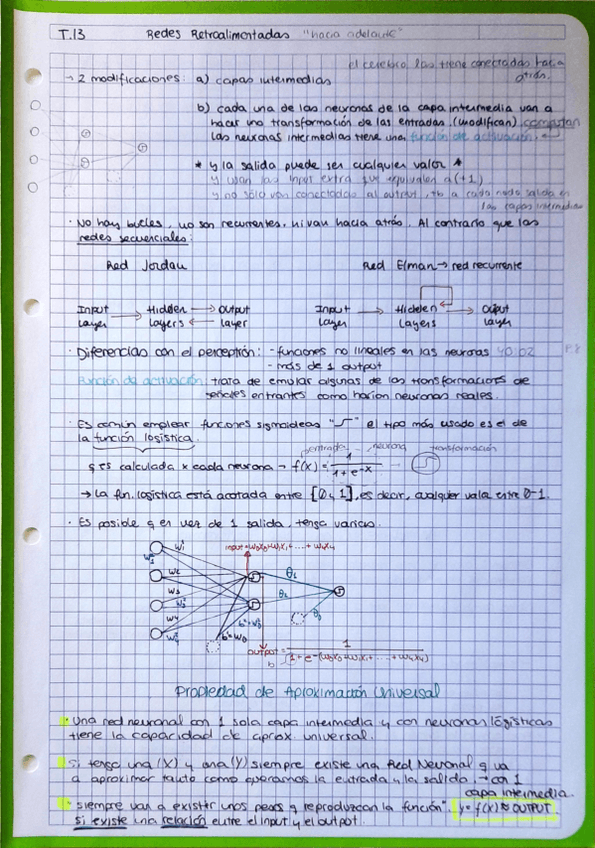 T.13 Redes Retroalimentadas "hacia adelante"
el cerebro las tiene conectadas hacia
atrás.
→ 2 modificaciones: a) capas intermedias
b) cada una de las neuronas de la capa intermedia van a
hacer una transformación de las entradas, (modifican) computan
las neuronas intermedias tiene una función de activación.
* y la salida puede ser cualquier valor *
y usan las input extra que equivalen a (+1)
y no sólo van conectadas al output, tb a cada nodo salida en
las capas intermedias
· No hay bucles, no son recurrentes, ni van hacia atrás. Al contrario que las
redes secuenciales:
Red Jordan Red Elman → red recurrente
Input → Hidden → Output Input → Hidden → Output
Layer Layers ← Layer Layer Layers Layer
· Diferencias con el perceptrón: - funciones no lineales en las neuronas
- más de 1 output
Función de activación: trata de emular algunas de las transformaciones de
señales entrantes como harían neuronas reales.
· Es común emplear funciones sigmoideas "" el tipo más usado es el de
la función logística.
neurona transformación
q es calculada x cada neurona → f(x) = 1 / 1 + e^-x
→ La fun. logística está acotada entre [0, 1], es decir, cualquier valor entre 0-1.
· Es posible q en vez de 1 salida, tenga varias.
input = w0x0 + w1x1 + .... + w4x4
w1
θ1
w2
θ2
w3
w4
θ0
output = 1 / 1 + e^-(w0x0 + w1x1 + .... + w4x4)
Propiedad de Aproximación Universal
· Una red neuronal con 1 sola capa intermedia y con neuronas logísticas
tiene la capacidad de aprox. universal.
Si tengo una (X) y una (Y) siempre existe una Red Neuronal q va
a aproximar tanto como queramos la entrada y la salida, → con 1
capa intermedia.
· "siempre van a existir unos pesos q reproduzcan la función". y = f(x) ≈ OUTPUT
si existe una relación entre el input y el output.